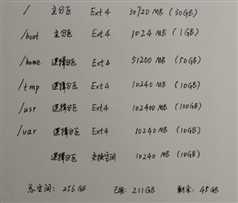 / 主分区 Ext4 30720 MB (30GB)
/boot 主分区 Ext4 1024 MB (1GB)
/home 逻辑分区 Ext4 51200 MB (50GB)
/tmp 逻辑分区 Ext4 10240 MB (10GB)
/usr 逻辑分区 Ext4 102400 MB (100GB)
/var 逻辑分区 Ext4 10240 MB (10GB)
逻辑分区 交换空间 10240 MB (10GB)
总空间: 256GB 已用: 211GB 剩余: 45GB